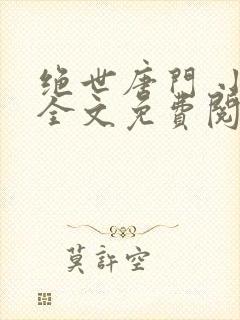 绝世唐门小
全文免費閱
莫許空